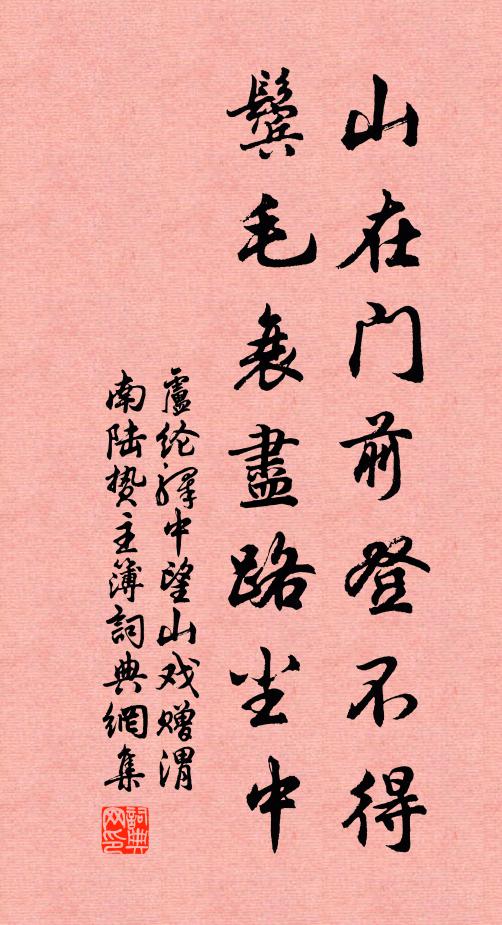 山在门前登不得
鬓毛衰盡路尘中
盧纶驛中望山戏赠渭
南陆贽主簿詞典網集
詞典
网印